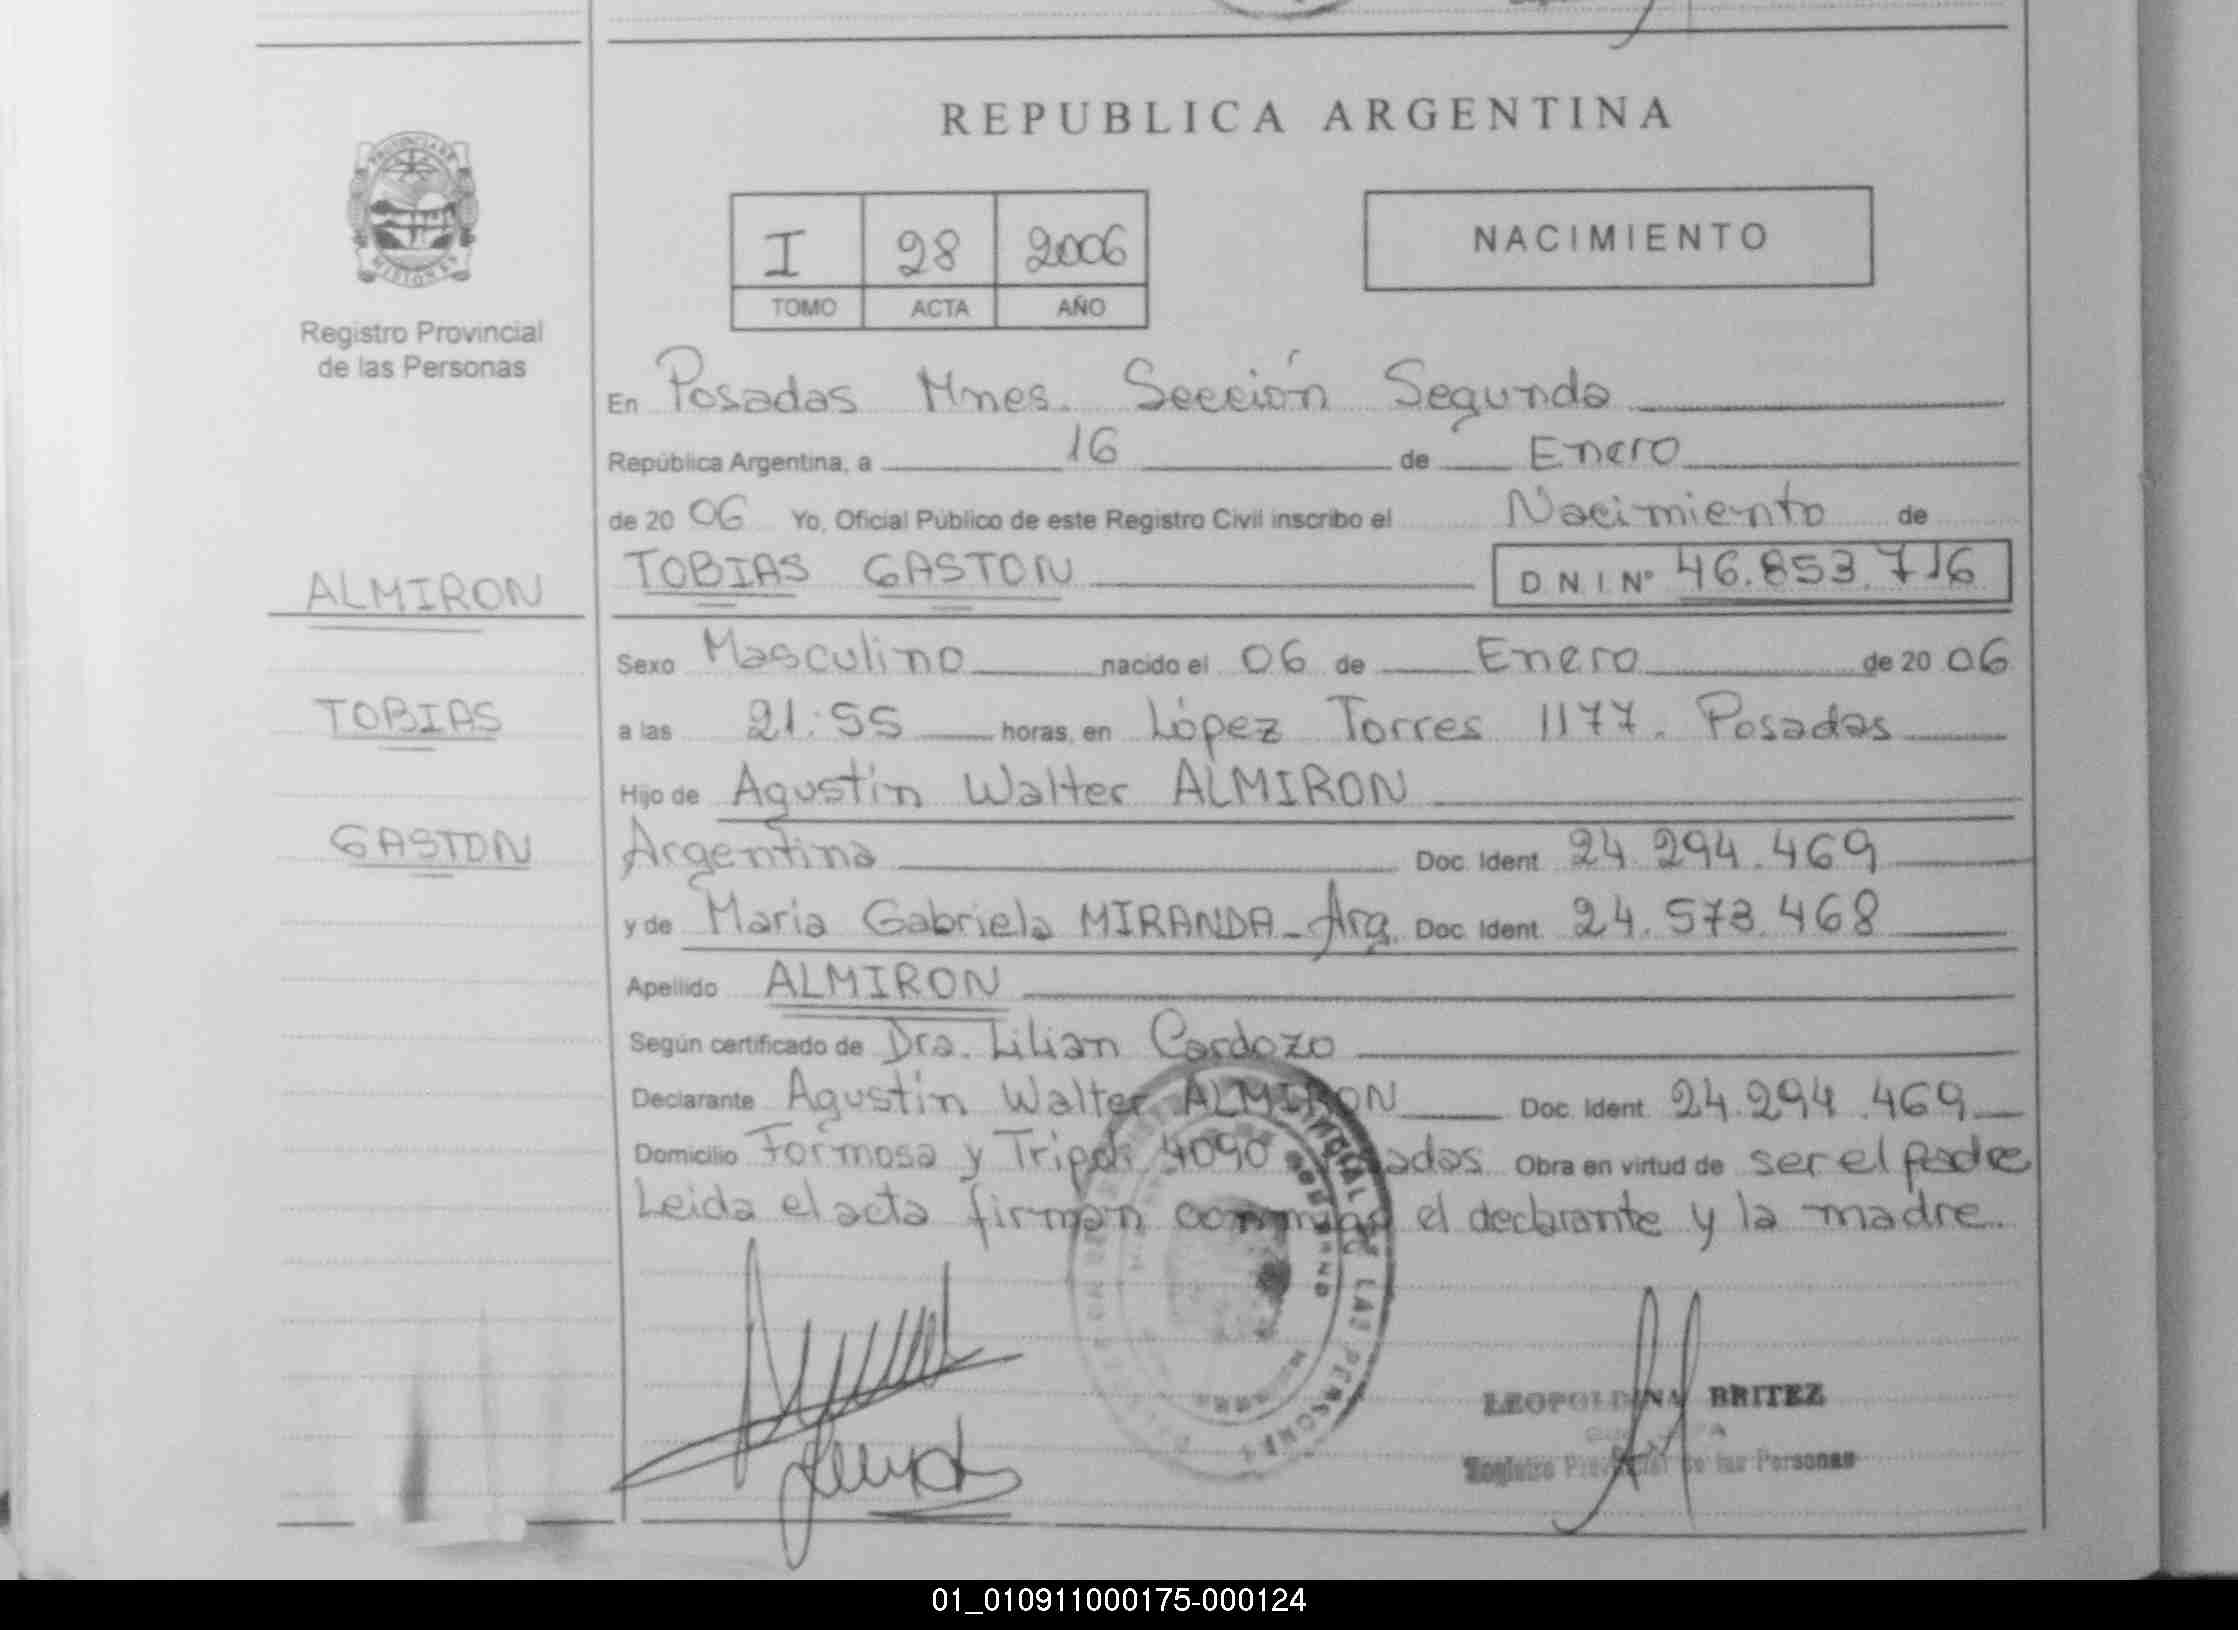 REPUBLICA ARGENTINA
PROVINCIA DE
MISIONES
Registro Provincial
de las Personas
I 28 2006
TOMO ACTA AÑO
NACIMIENTO
En Posadas Mnes. Sección Segunda
República Argentina, a 16 de Enero
de 2006 Yo, Oficial Público de este Registro Civil inscribo el Nacimiento de
ALMIRON
TOBIAS GASTON D N I Nº 46.853.716
Sexo Masculino nacido el 06 de Enero de 2006
TOBIAS
a las 21:55 horas, en López Torres 1177. Posadas
Hijo de Agustín Walter ALMIRON
GASTON
Argentina Doc. Ident. 24.294.469
y de Maria Gabriela MIRANDA - Arg. Doc. Ident. 24.573.468
Apellido ALMIRON
Según certificado de Dra. Lilian Cardozo
Declarante Agustín Walter ALMIRON Doc. Ident. 24.294.469
Domicilio Formosa y Tripoli 4090 Posadas Obra en virtud de ser el padre
Leida el acta firman conmigo el declarante y la madre.
LAS PERSONAS
LEOPOLDINA BRITEZ
Registro Provincial de las Personas
01_010911000175-000124